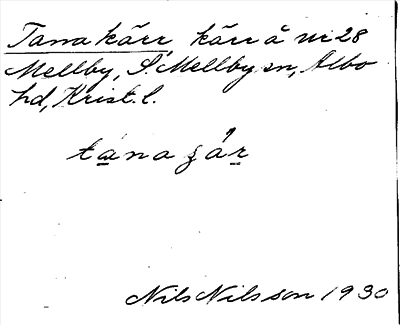 Tanakärr, kärr å nr 28
Mellby, S. Mellby sn, Albo
hd, Krist. l.
Nils Nilsson 1930